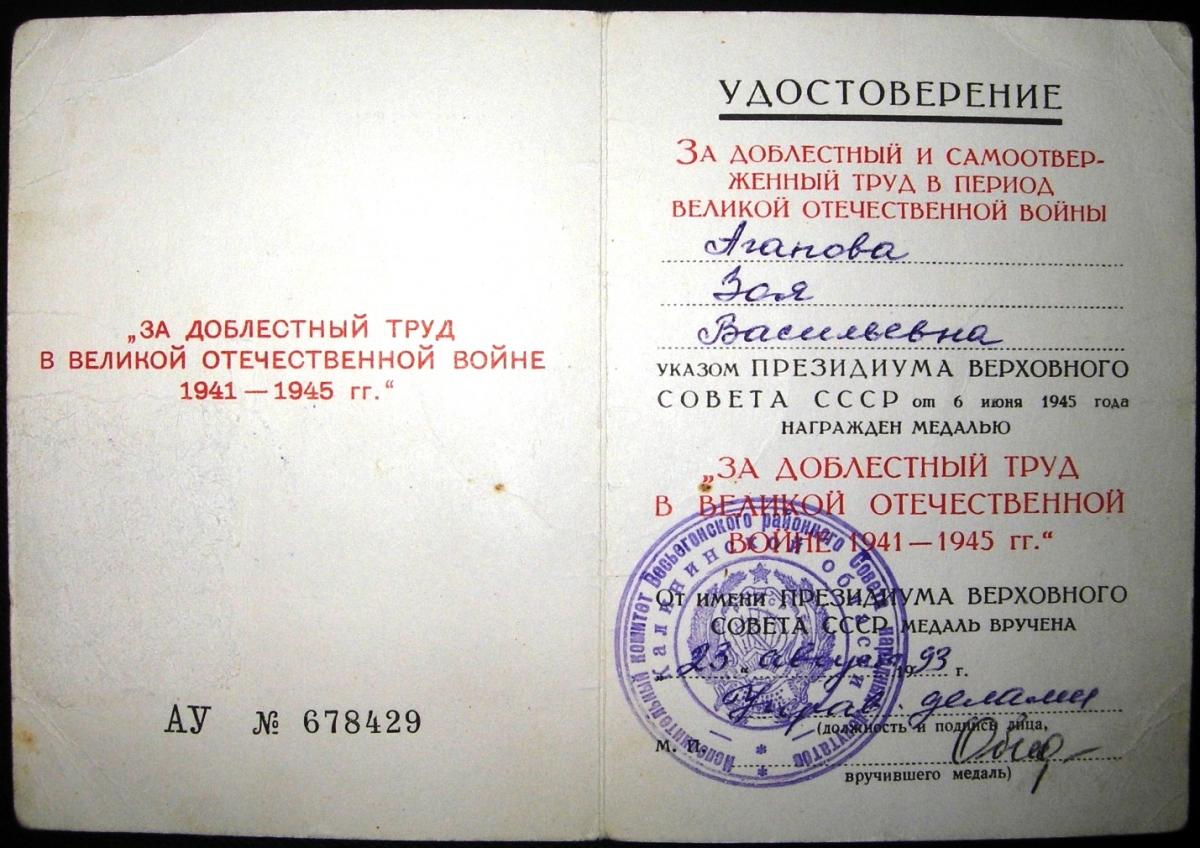 „ЗА ДОБЛЕСТНЫЙ ТРУД
В ВЕЛИКОЙ ОТЕЧЕСТВЕННОЙ ВОЙНЕ
1941 — 1945 гг.“
АУ № 678429
УДОСТОВЕРЕНИЕ
ЗА ДОБЛЕСТНЫЙ И САМООТВЕР-
ЖЕННЫЙ ТРУД В ПЕРИОД
ВЕЛИКОЙ ОТЕЧЕСТВЕННОЙ ВОЙНЫ
Агапова
Зоя
Васильевна
УКАЗОМ ПРЕЗИДИУМА ВЕРХОВНОГО
СОВЕТА СССР от 6 июня 1945 года
НАГРАЖДЕН МЕДАЛЬЮ
„ЗА ДОБЛЕСТНЫЙ ТРУД
В ВЕЛИКОЙ ОТЕЧЕСТВЕННОЙ
ВОЙНЕ 1941 — 1945 гг.“
От имени ПРЕЗИДИУМА ВЕРХОВНОГО
СОВЕТА СССР МЕДАЛЬ ВРУЧЕНА
„23“ август 1993 г.
Управ. делами
(должность и подпись лица,
М. П.
вручившего медаль)
Исполнительный комитет Весьегонского районного Совета народных депутатов
Калининской области